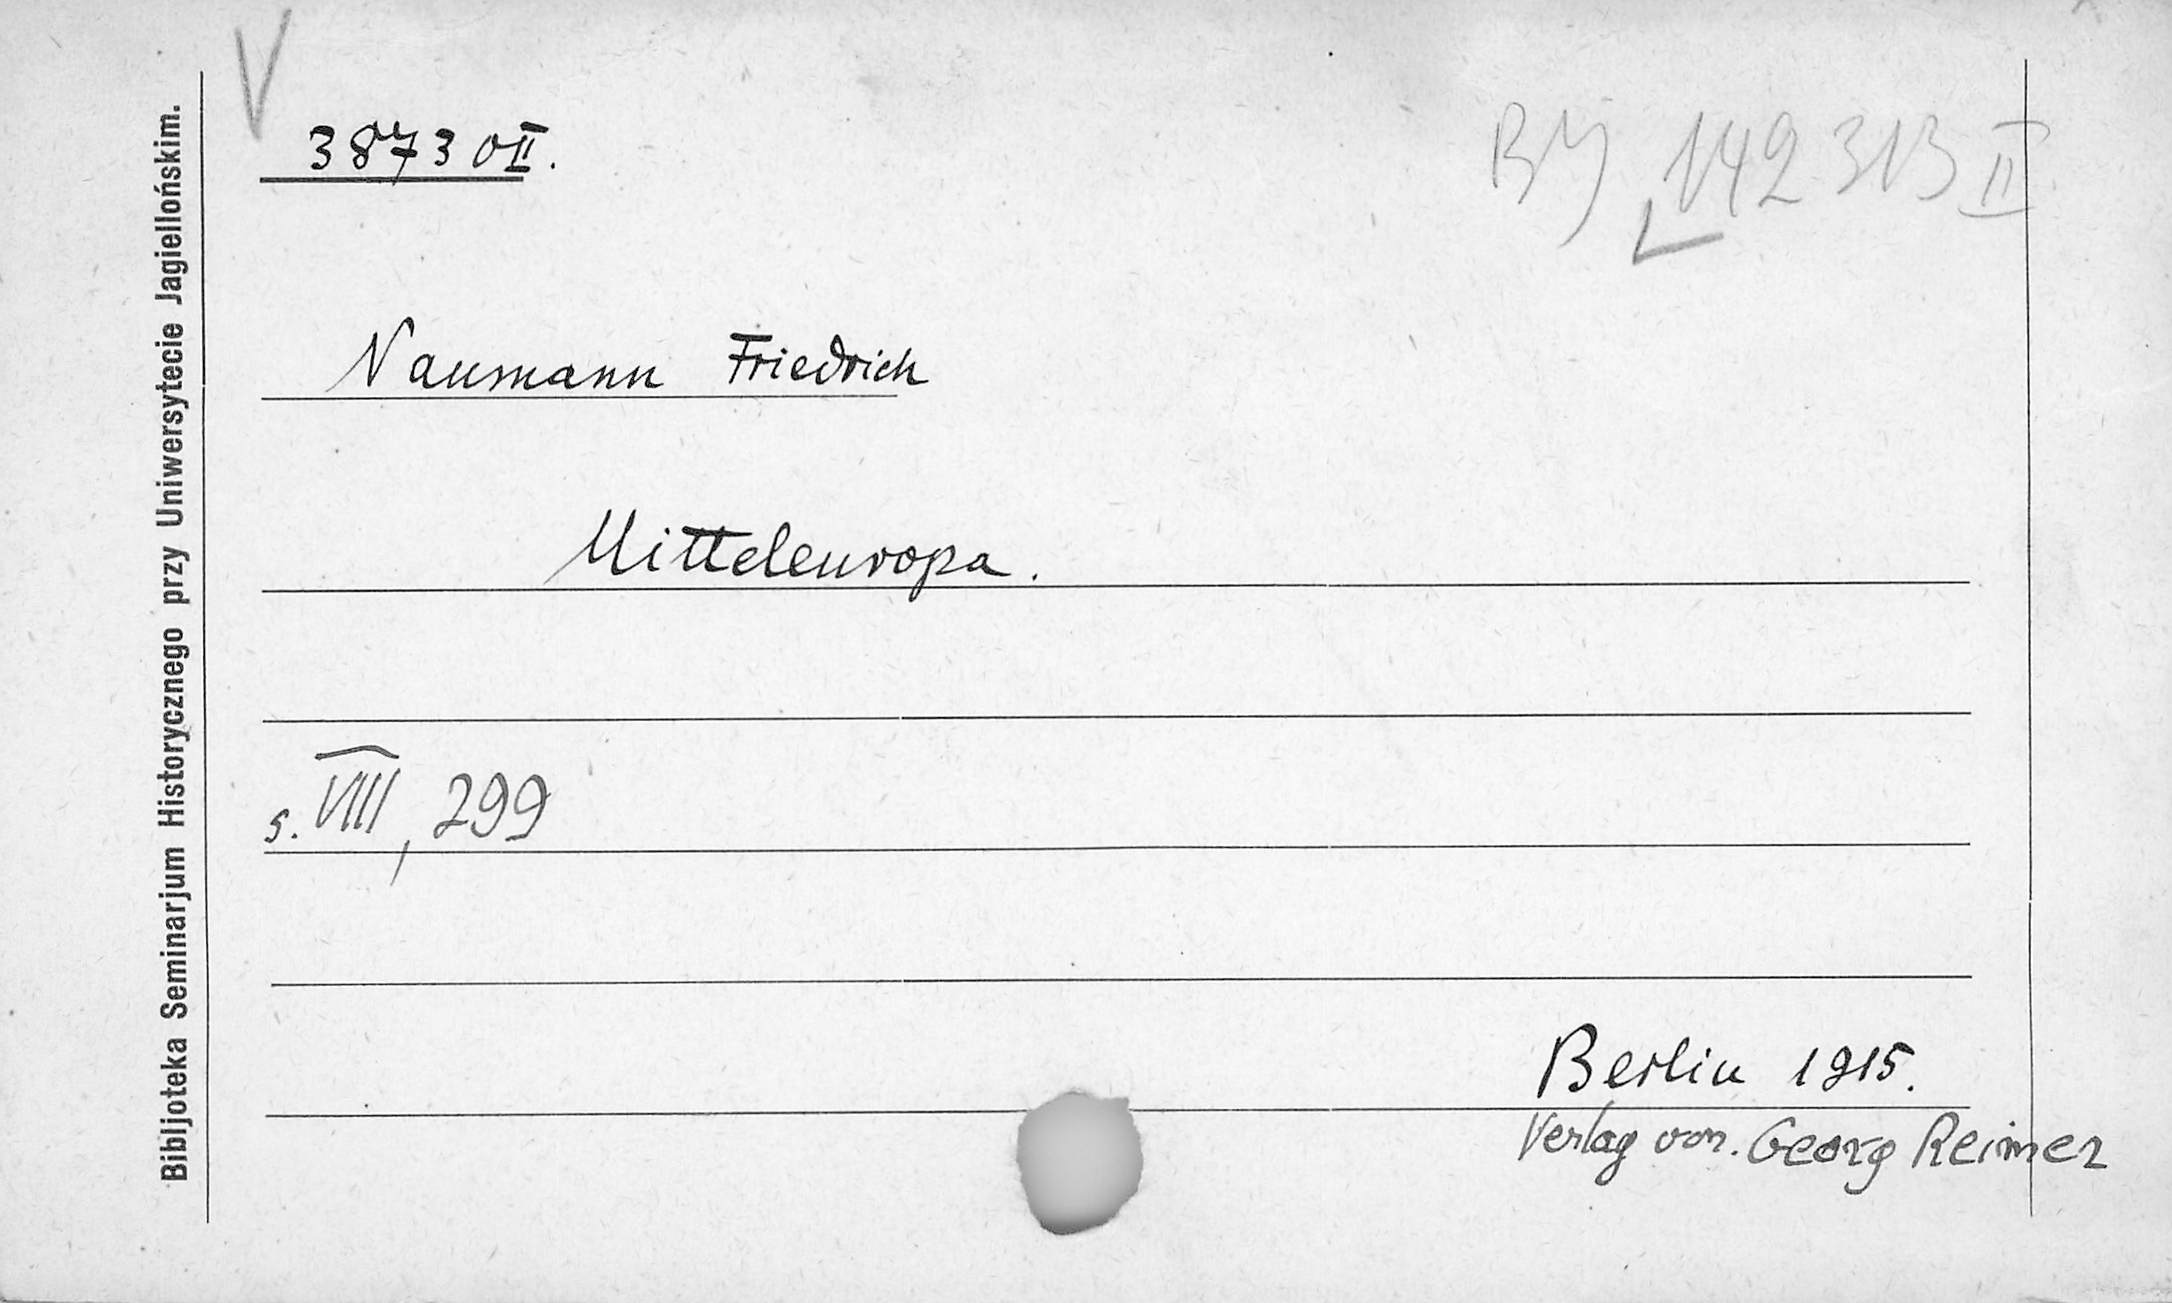 V
3873 O II.
BJ 142313 II
Naumann Friedrich
Mitteleuropa.
s. VIII, 299
Berlin 1915.
Verlag von. Georg Reimer
Bibljoteka Seminarjum Historycznego przy Uniwersytecie Jagiellońskim.